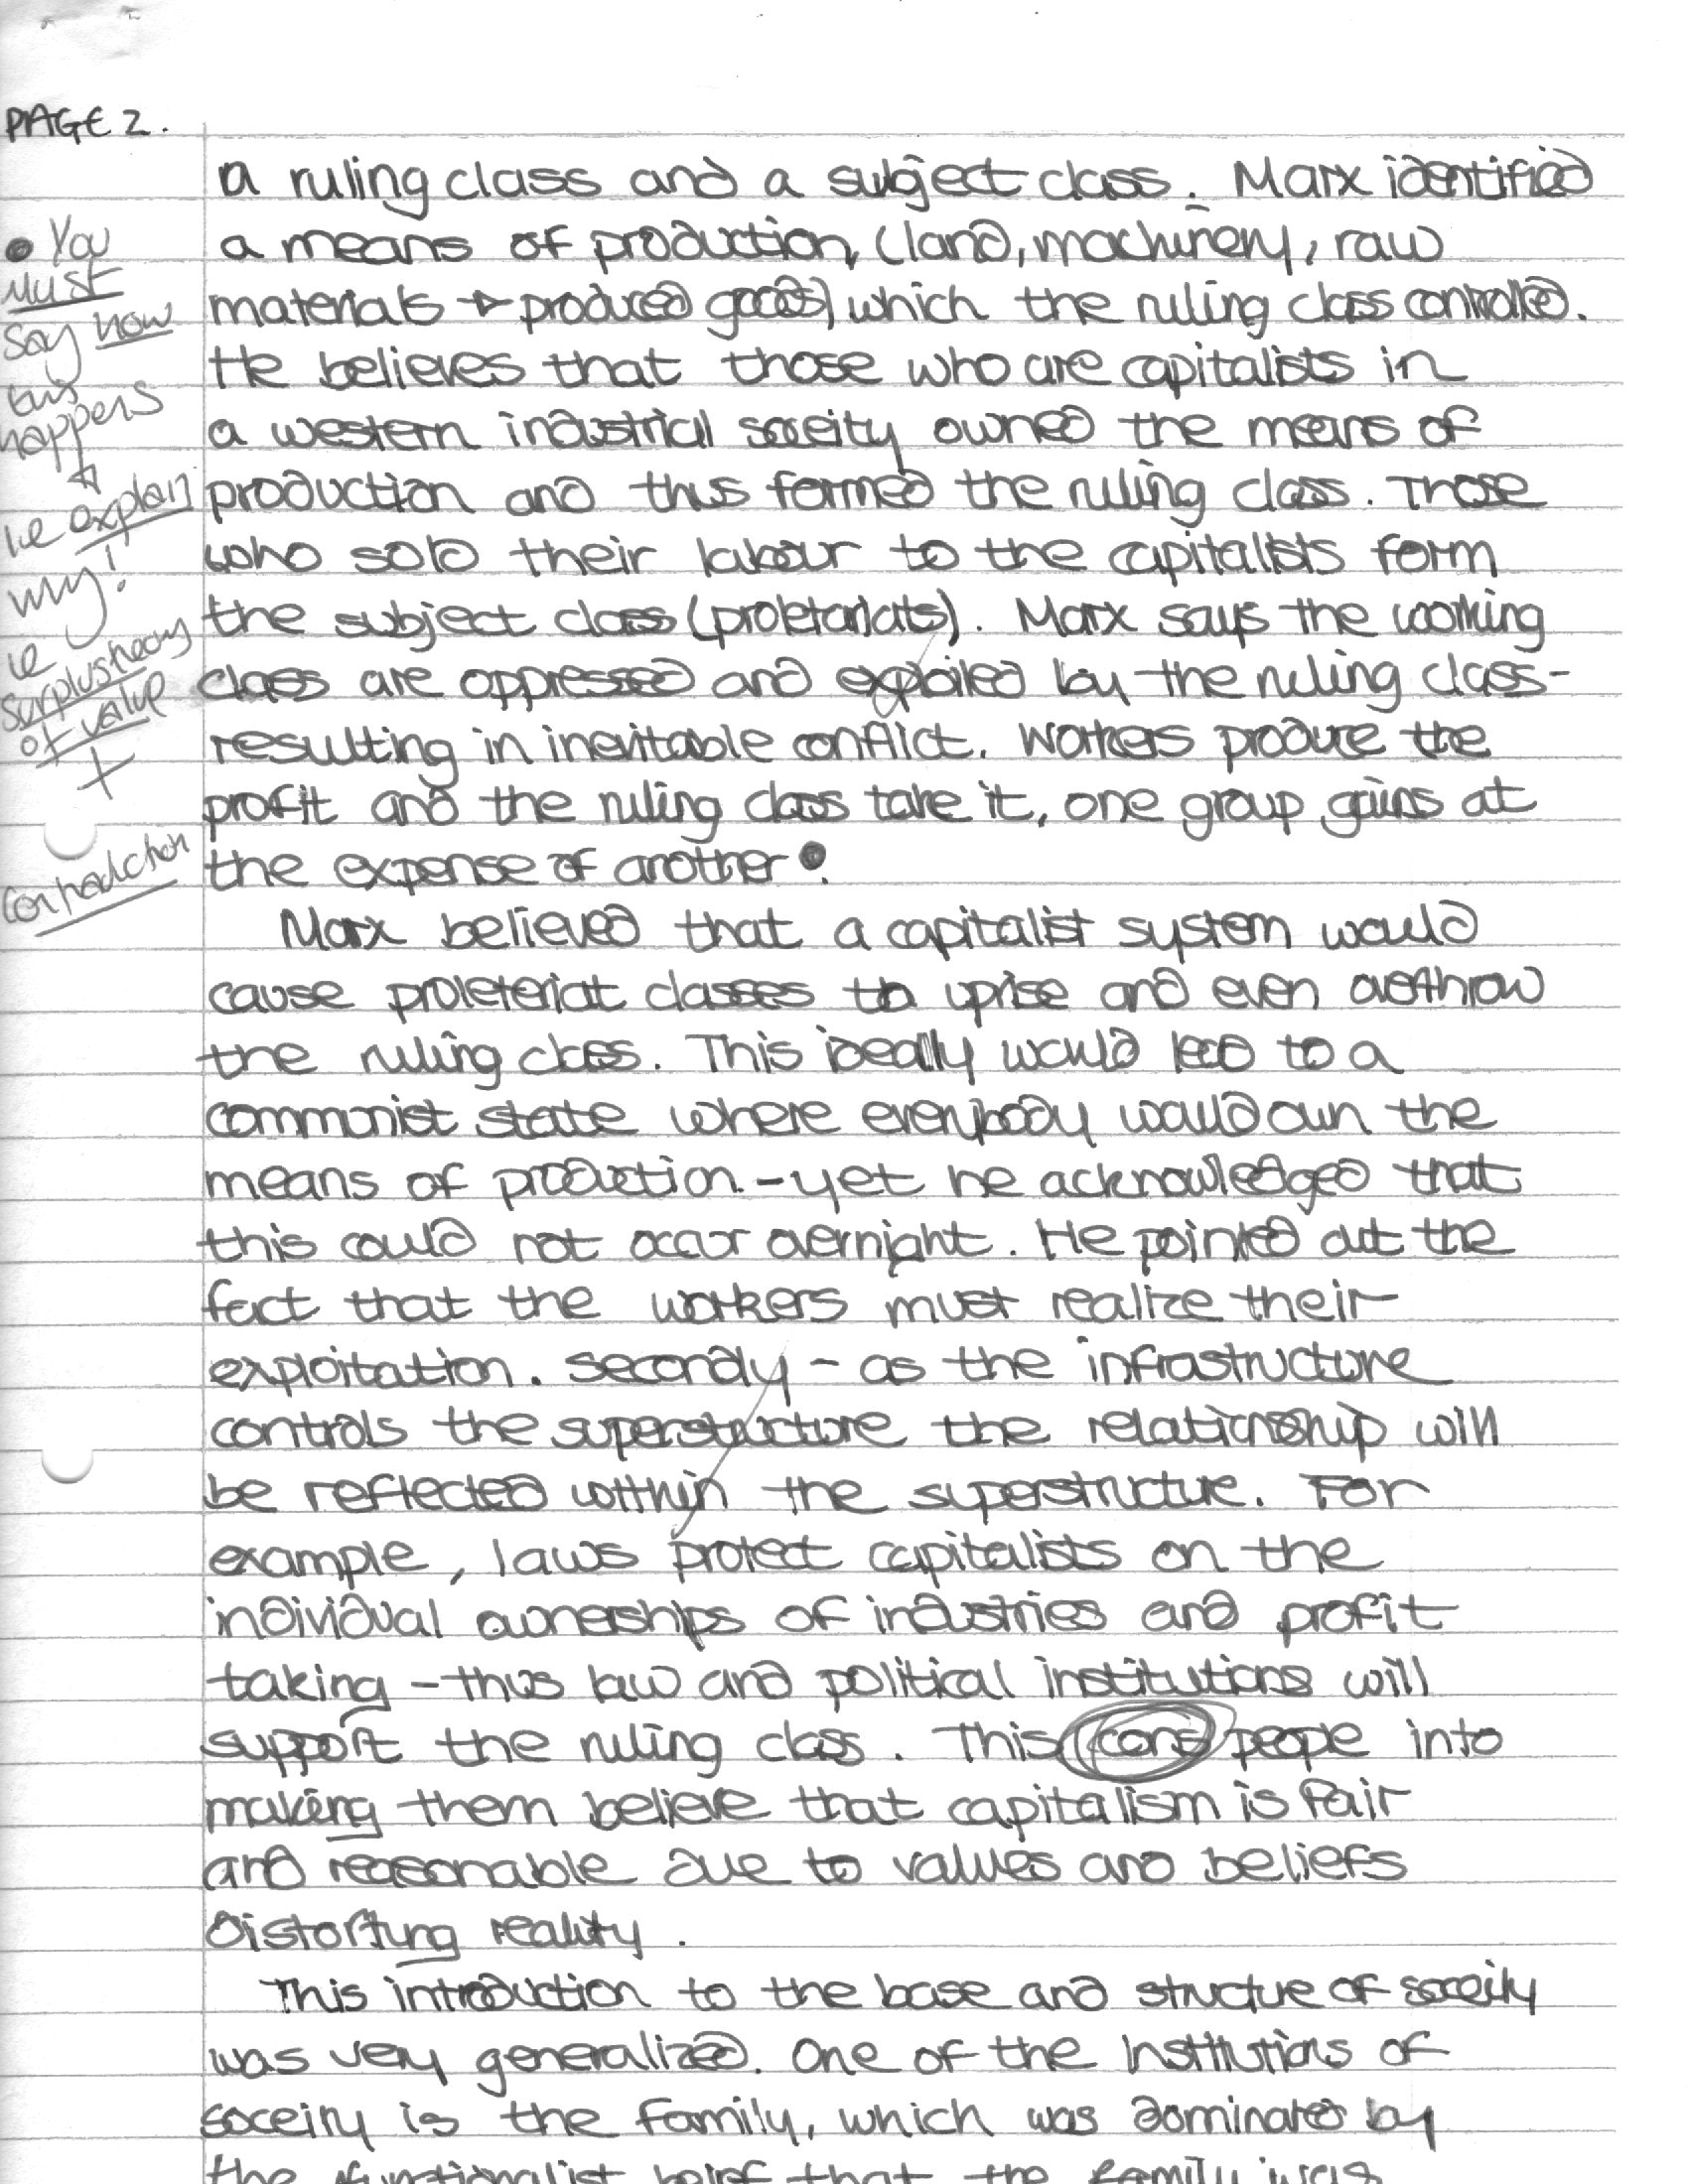 PAGE 2.
a ruling class and a subject class. Marx identified
a means of production, (land, machinery, raw
materials → produced goods) which the ruling class controlled.
He believes that those who are capitalists in
a western industrial soceity owned the means of
production and thus formed the ruling class. Those
who sold their labour to the capitalists form
the subject class (proletariats). Marx says the working
class are oppressed and exploited by the ruling class-
resulting in inevitable conflict. Workers produce the
profit and the ruling class take it, one group gains at
the expense of another.
Marx believed that a capitalist system would
cause proleteriat classes to uprise and even overthrow
the ruling class. This ideally would lead to a
communist state where everybody would own the
means of production - yet he acknowledged that
this could not occur overnight. He pointed out the
fact that the workers must realize their
exploitation. Secondly - as the infrastructure
controls the superstructure the relationship will
be reflected within the superstructure. For
example, laws protect capitalists on the
individual ownerships of industries and profit
taking - thus law and political institutions will
support the ruling class. This cons people into
making them believe that capitalism is fair
and reasonable due to values and beliefs
distorting reality.
This introduction to the base and structure of soceity
was very generalized. One of the institutions of
soceity is the family, which was dominated by
the functionalist belief that the family was
• You
Must
say how
this
happens
ie explain
why!
ie
surplus theory
of value
+
contradiction